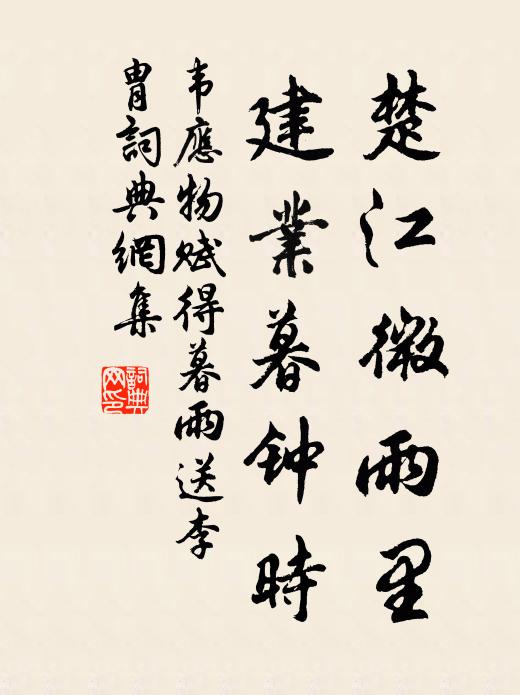 楚江微雨里
建業暮钟時
韦應物赋得暮雨送李
胄詞典網集
詞典网印